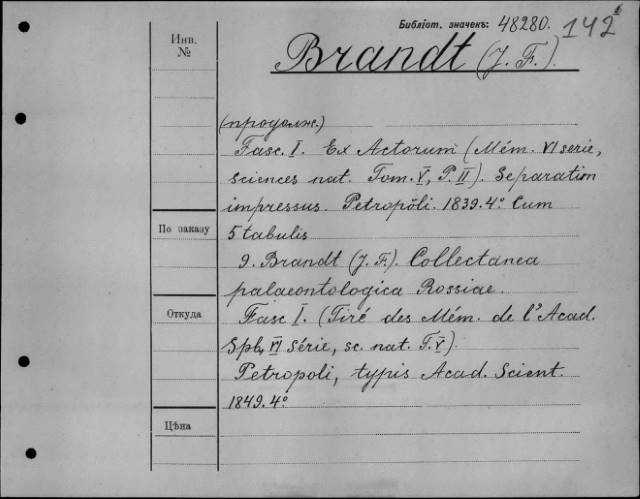 Библіот. значекъ: 48280. 142
Инв. №
Brandt (J. F.).
(продолж.)
Fasc. I. Ex Actorum (Mém. VI serie,
sciences nat. Tom. V, P. II). Separation
impressus. Petropoli. 1839. 4° Cum
По заказу
5 tabulis
9. Brandt (J. F.). Collectanea
palaeontologica Rossiae.
Откуда
Fasc I. (Tiré des Mém. de l'Acad.
Spb, VI Série, sc. nat. T. V).
Petropoli, typis Acad. Scient.
1849. 4°
Цѣна